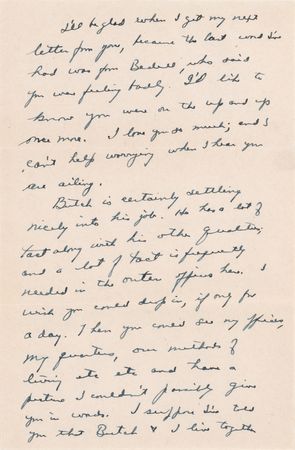 I'll be glad when I get my next
letter from you, because the last word I've
had was from Bedell, who said
you was feeling badly. I'd like to
know you were on the up and up
once more. I love you so much; and I
can't help worrying when I hear you
are ailing.
Butch is certainly settling
nicely into his job. He has a lot of
tact along with his other qualities;
and a lot of tact is frequently
needed in the outer offices here. I
wish you could drop in, if only for
a day. Then you could see my offices,
my quarters, our methods of
living etc etc and have a
picture I couldn't possibly give
you in words. I suppose I've told
you that Butch & I live together